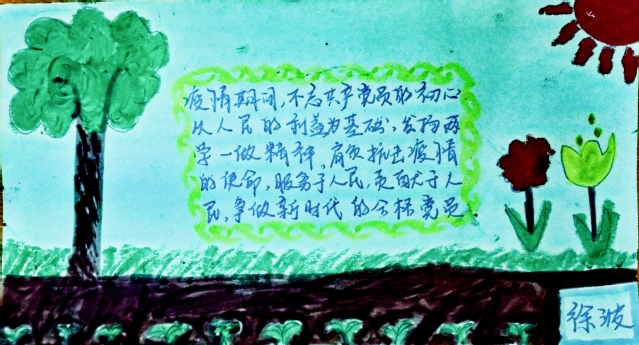 疫情期间,不忘共产党员的初心
以人民的利益为基础,发扬两
学一做精神,肩负抗击疫情
的使命,服务于人民,贡献于人
民,争做新时代的合格党员
徐波